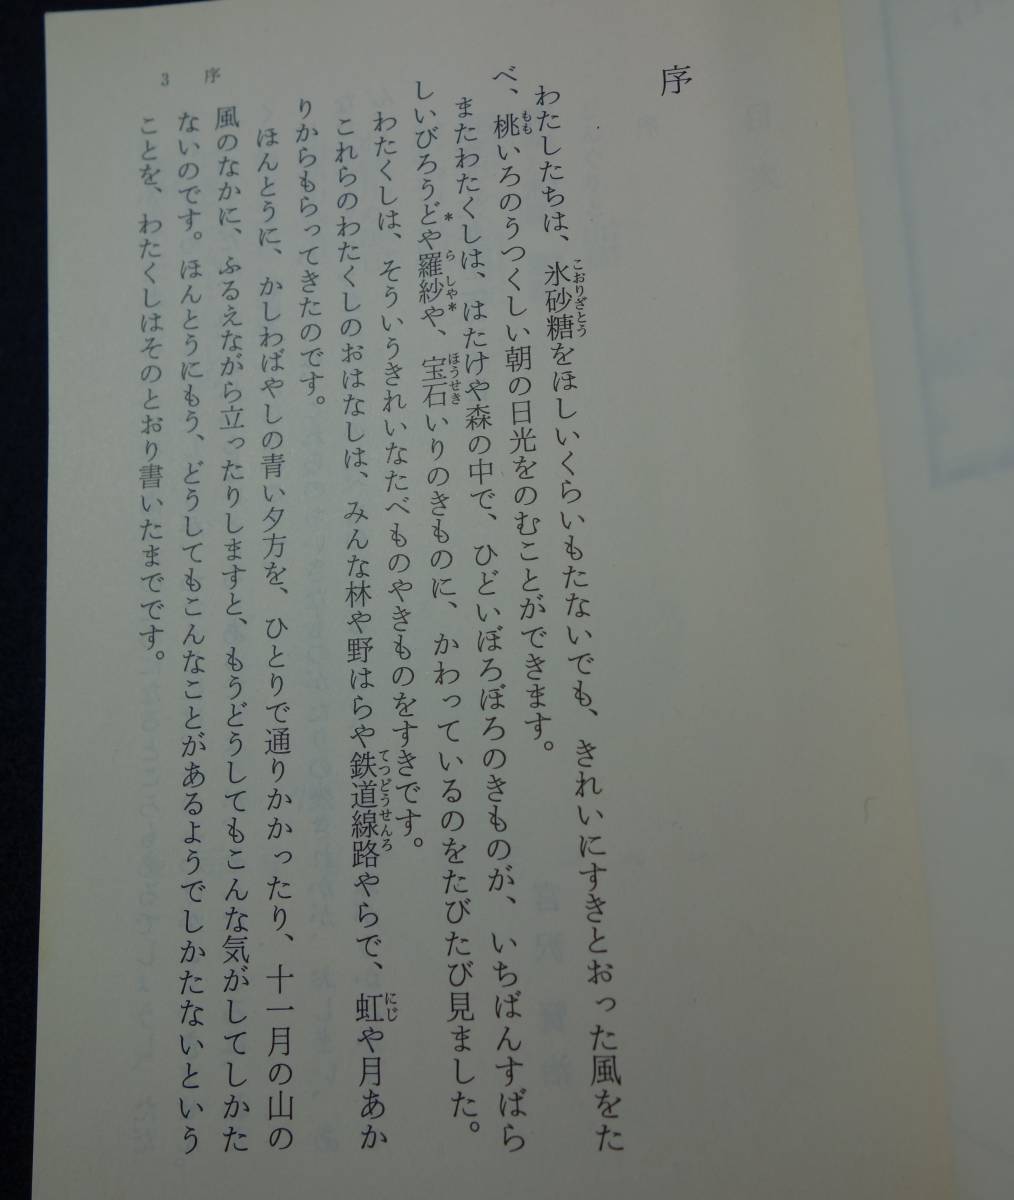 序
わたしたちは、氷砂糖をほしいくらいもたないでも、きれいにすきとおった風をた
べ、桃いろのうつくしい朝の日光をのむことができます。
またわたくしは、はたけや森の中で、ひどいぼろぼろのきものが、いちばんすばら
しいびろうどや羅紗や、宝石いりのきものに、かわっているのをたびたび見ました。
わたくしは、そういうきれいなたべものやきものをすきです。
これらのわたくしのおはなしは、みんな林や野はらや鉄道線路やらで、虹や月あか
りからもらってきたのです。
ほんとうに、かしわばやしの青い夕方を、ひとりで通りかかったり、十一月の山の
風のなかに、ふるえながら立ったりしますと、もうどうしてもこんな気がしてしかた
ないのです。ほんとうにもう、どうしてもこんなことがあるようでしかたないという
ことを、わたくしはそのとおり書いたまでです。
3 序